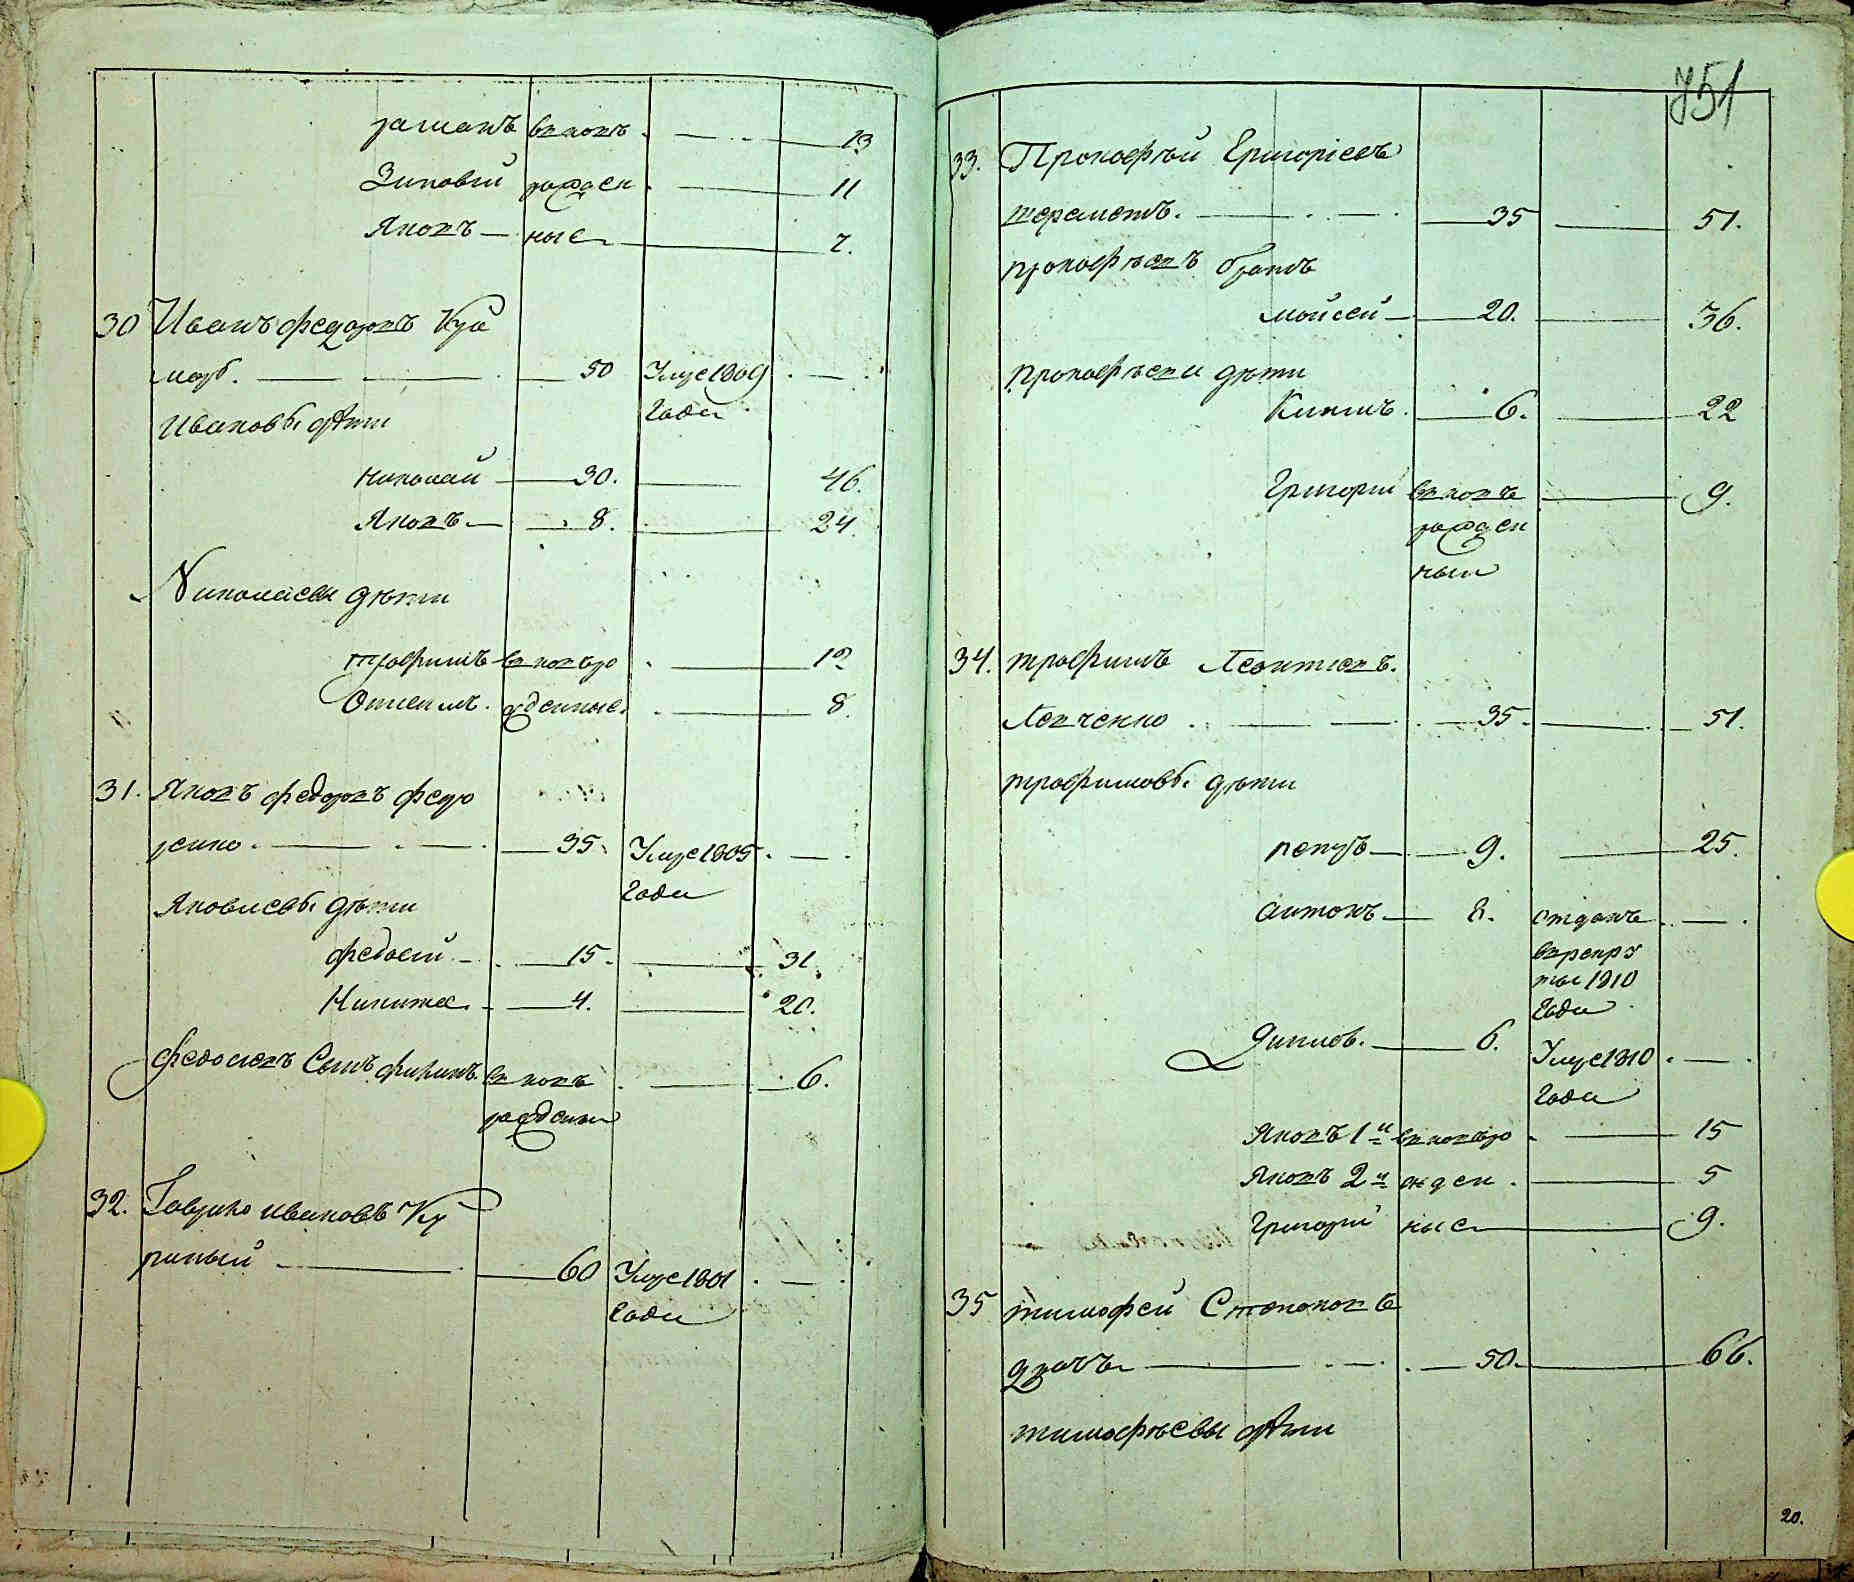 романъ вновъ 13
Зиновій рожден 11
Яковъ ные 7.
30 Иванъ федоровъ
50 Умре 1809
Года
Ивановы дѣти
Николай 30. 46.
Яковъ 8. 24.
Николаевы дѣти
трофимъ вновъ ро 12
жденные 8.
31. Яковъ федоровъ федо
ренко 35. Умре 1805
Года
Яковлевы дѣти
федосій 15. 31.
Никита 4. 20.
федосіевъ Сынъ вновъ 6.
рожденны
32. Гаврило Ивановъ Ку
60 Умре 1801
Года
751
33. Прокофѣй Григоріевъ
35 51.
прокофѣевъ братъ
Мойсей 20. 36.
прокофѣевы дѣти
6. 22
Григорій вновъ 9.
рожден
ныи
34. трофимъ Леонтіевъ.
Левченко 35. 51.
трофимовы дѣти
петръ 9. 25.
антонъ 8. отданъ
врекру
ты 1810
Года
Данило. 6. Умре 1810
Года
Яковъ 1й вновъ ро 15
Яковъ 2й жден 5
Григорій ные 9.
35 тимофей Степановъ
50. 66.
тимофѣевы дѣти
20.